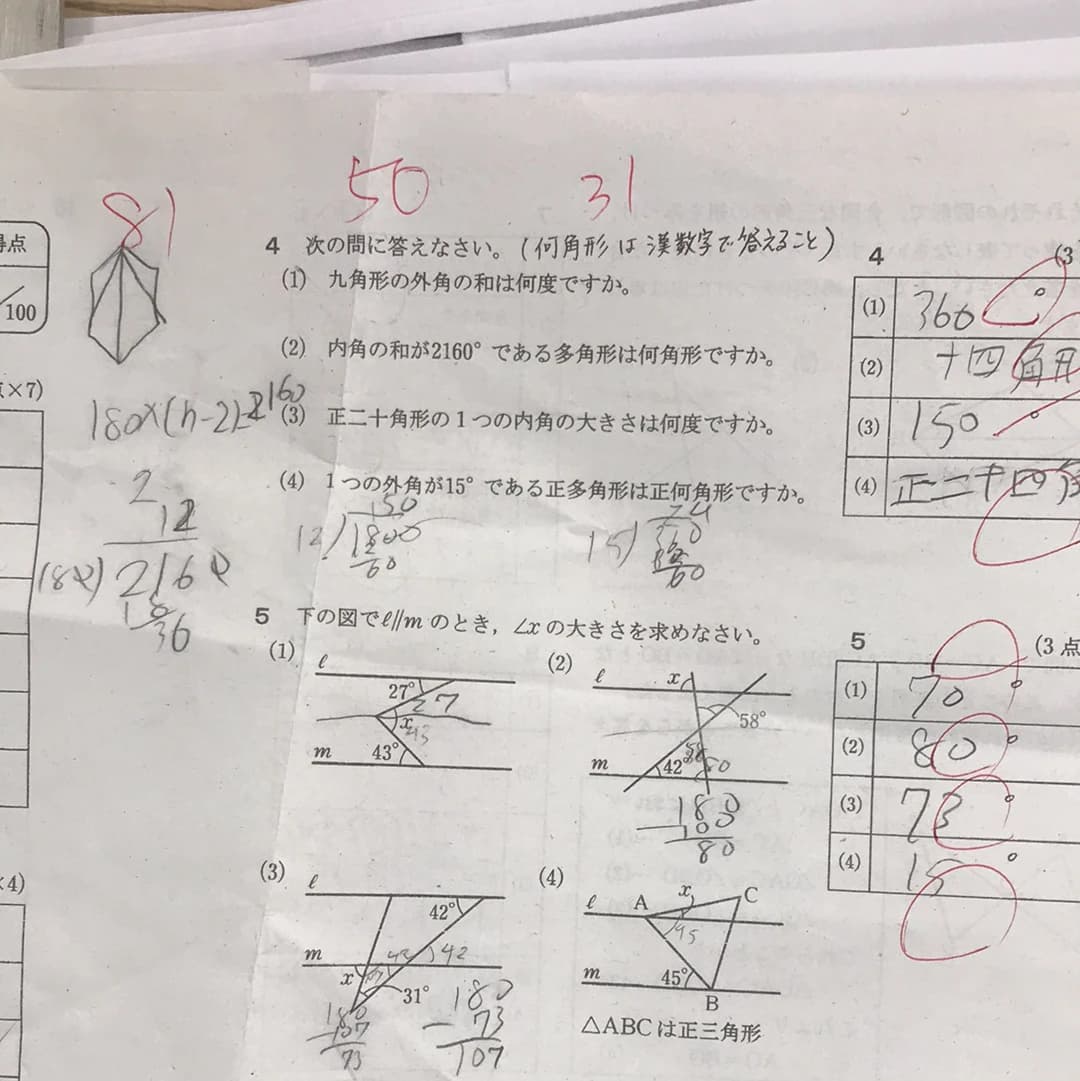 50
31
81
得点
/100
4 次の問に答えなさい。(何角形は漢数字で答えること)
(1) 九角形の外角の和は何度ですか。
(2) 内角の和が2160°である多角形は何角形ですか。
(3) 正二十角形の1つの内角の大きさは何度ですか。
(4) 1つの外角が15°である正多角形は正何角形ですか。
点×7)
180×(n-2)=2160
2
12
180)2160
18
36
150
12)1800
60
24
15)360
60
4
(3
(1) 360°
(2) 十四角形
(3) 150°
(4) 正二十四角
5 下の図でℓ//mのとき,∠xの大きさを求めなさい。
(1)
ℓ
27°
27
x
43
m
43°
(2)
ℓ
x
58°
58
m
42°
80
180
-100
80
5
(3点
(1) 70°
(2) 80°
(3) 73°
(4) 15°
×4)
(3)
ℓ
42°
m
42
42
x
31°
180
-107
73
180
-73
107
(4)
ℓ
A
x
C
45
m
45°
B
△ABCは正三角形